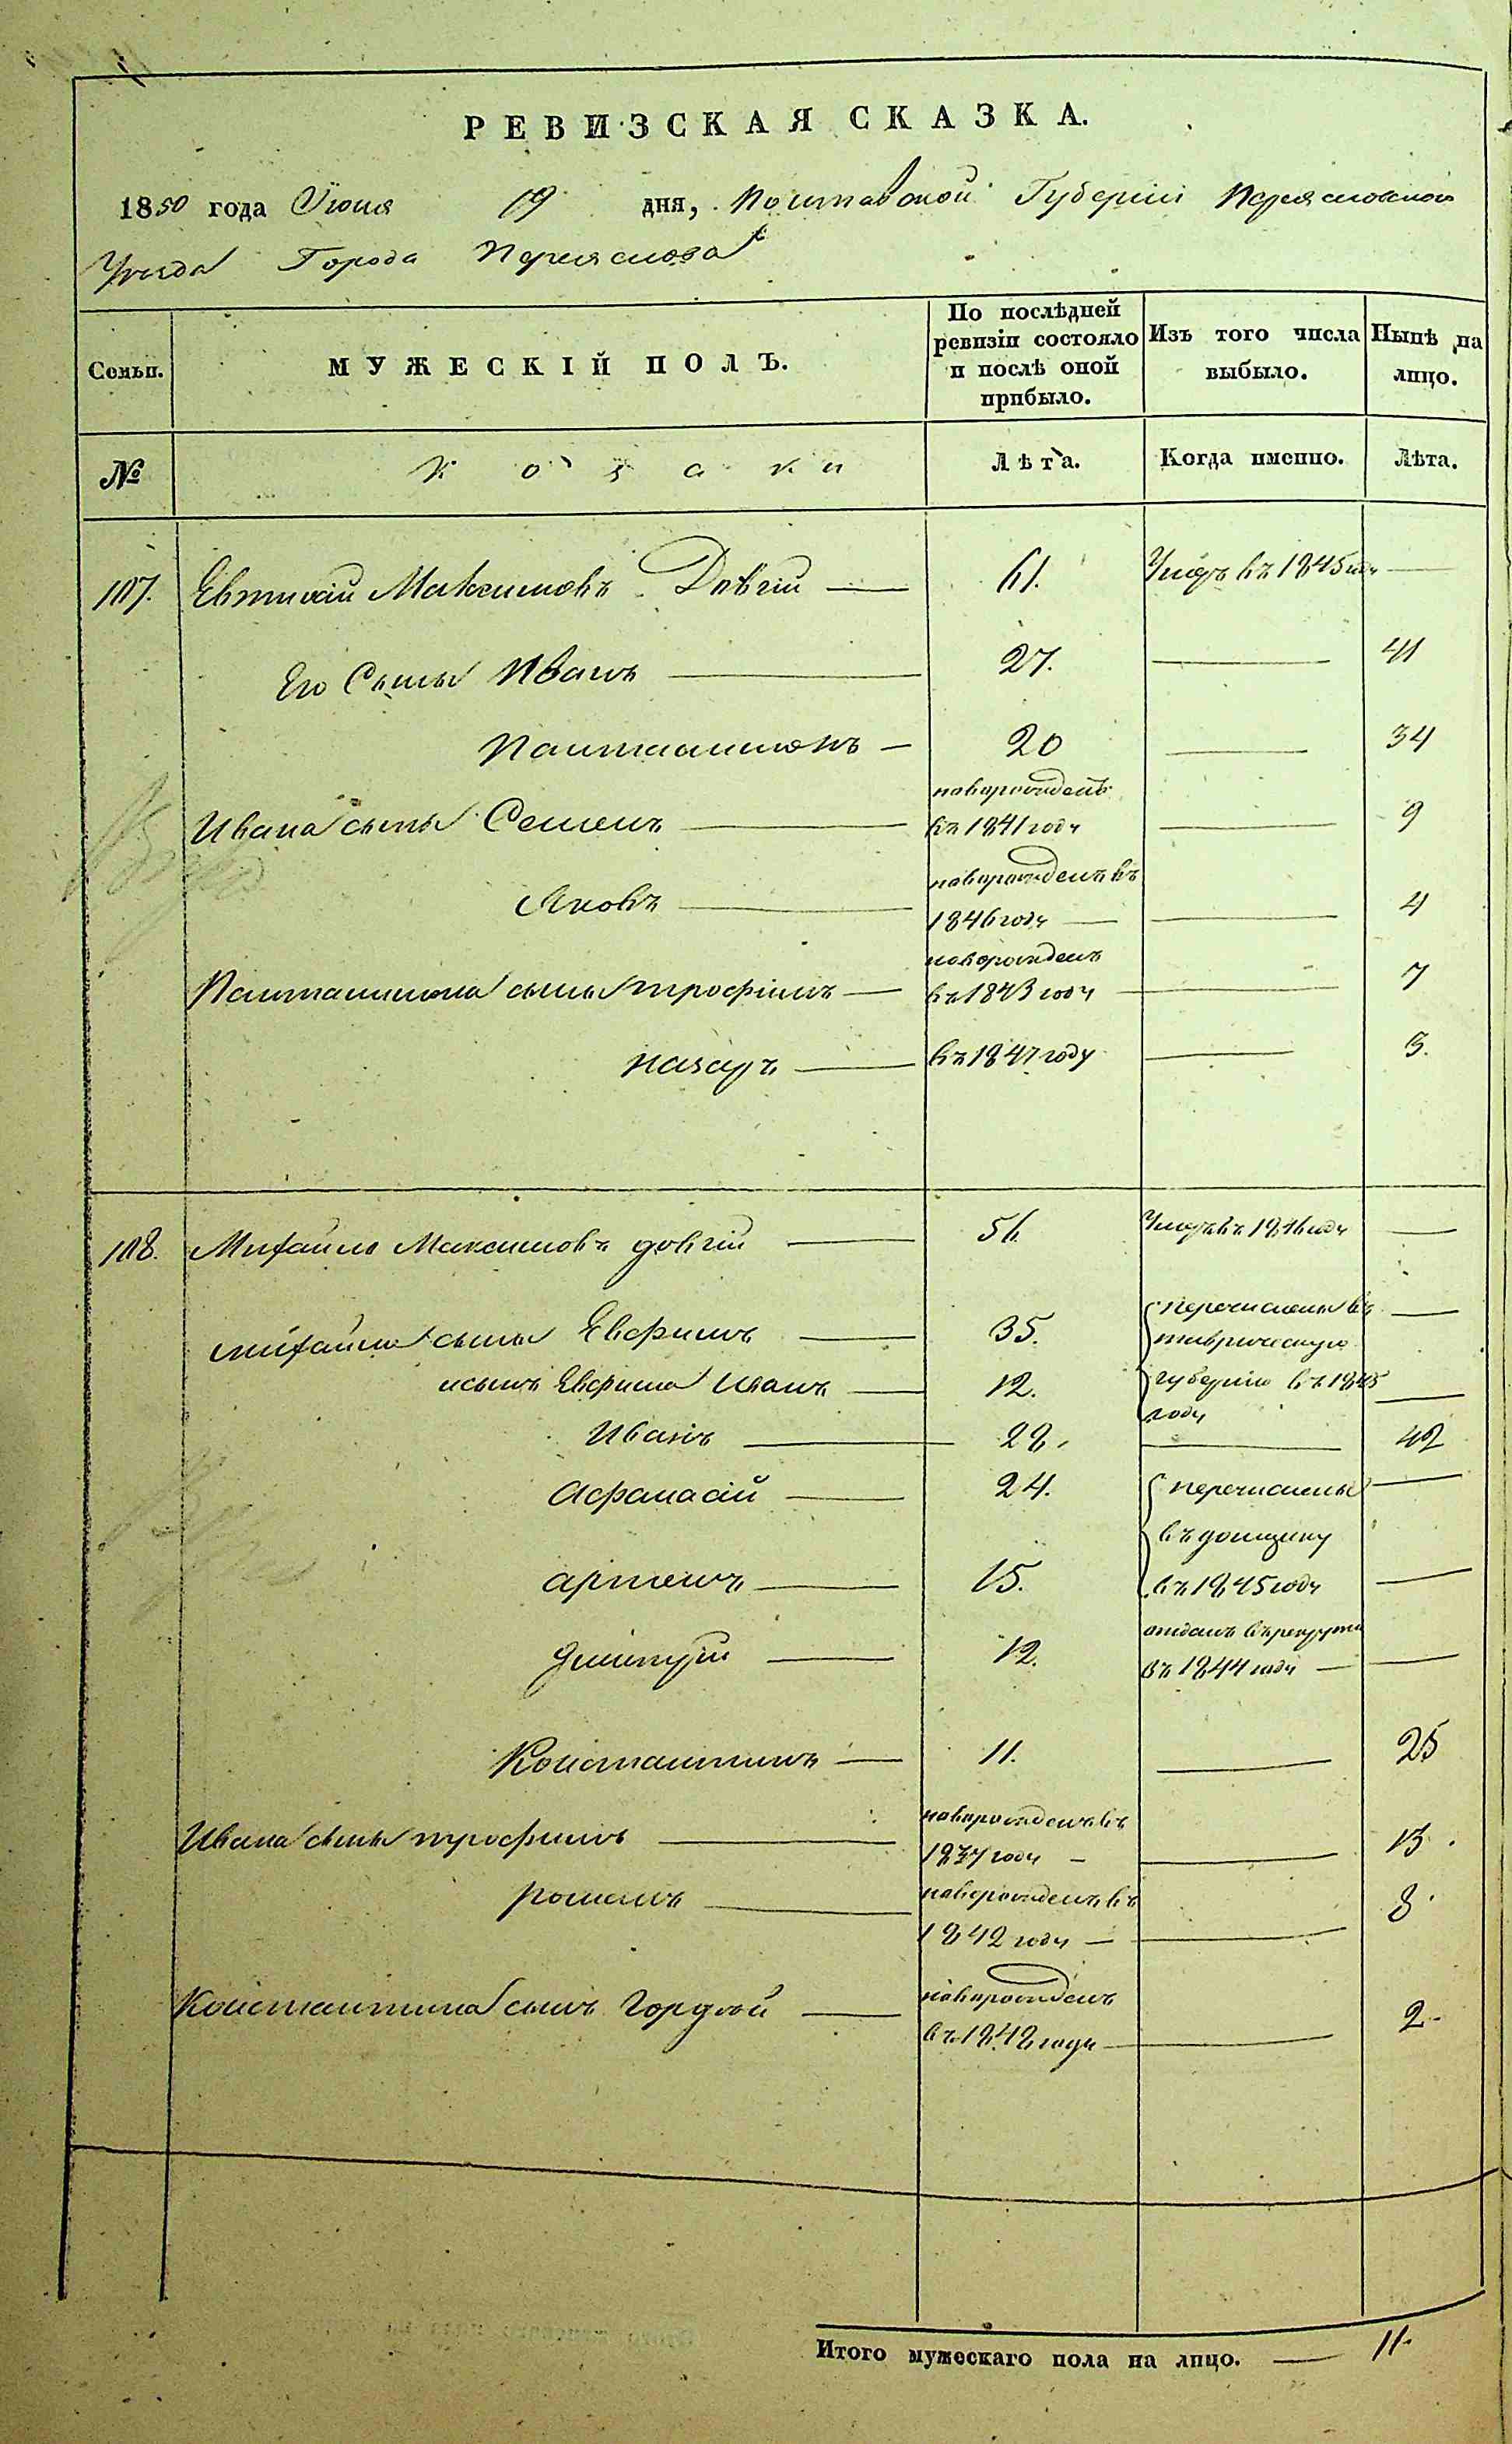 РЕВИЗСКАЯ СКАЗКА.
1850 года Июня 19 дня, Полтавской Губерніи Переясловской
Уезда Города Переяслова
Семьи. МУЖЕСКІЙ ПОЛЪ. По послѣдней ревизіи состояло и послѣ оной прибыло. Изъ того числа выбыло. Нынѣ на лицо.
№ Козаки Лѣта. Когда именно. Лѣта.
107. Евтихій Максимовъ Довгій — 61. Умеръ въ 1845 году —
Его Сыны Иванъ — 27. — 41
Пантилимонъ — 20 — 34
Ивана сыны Семенъ — новорожденъ въ 1841 году — 9
Яковъ — новорожденъ въ 1846 году — — 4
Пантилимона сыны трофимъ — новорожденъ въ 1843 году — 7
назаръ — въ 1847 году — 3.
108. Михайло Максимовъ довгій — 56. Умеръ въ 1846 году —
михайла сыны Евфимъ — 35. перечислены въ таврическую губернію въ 1845 году —
исынъ Евфима Иванъ — 12. —
Иванъ — 28. — 42
Афанасій — 24. перечислены въ донщину въ 1845 году —
артемъ — 15. —
дмитрій — 12. отданъ врекруты въ 1844 году — —
Константинъ — 11. — 25
Ивана сыны трофимъ — новорожденъ въ 1837 году — — 13.
романъ — новорожденъ въ 1842 году — — 8.
Константина сынъ гордѣй — новорожденъ въ 1848 году — 2.
Итого мужескаго пола на лицо. — 11.